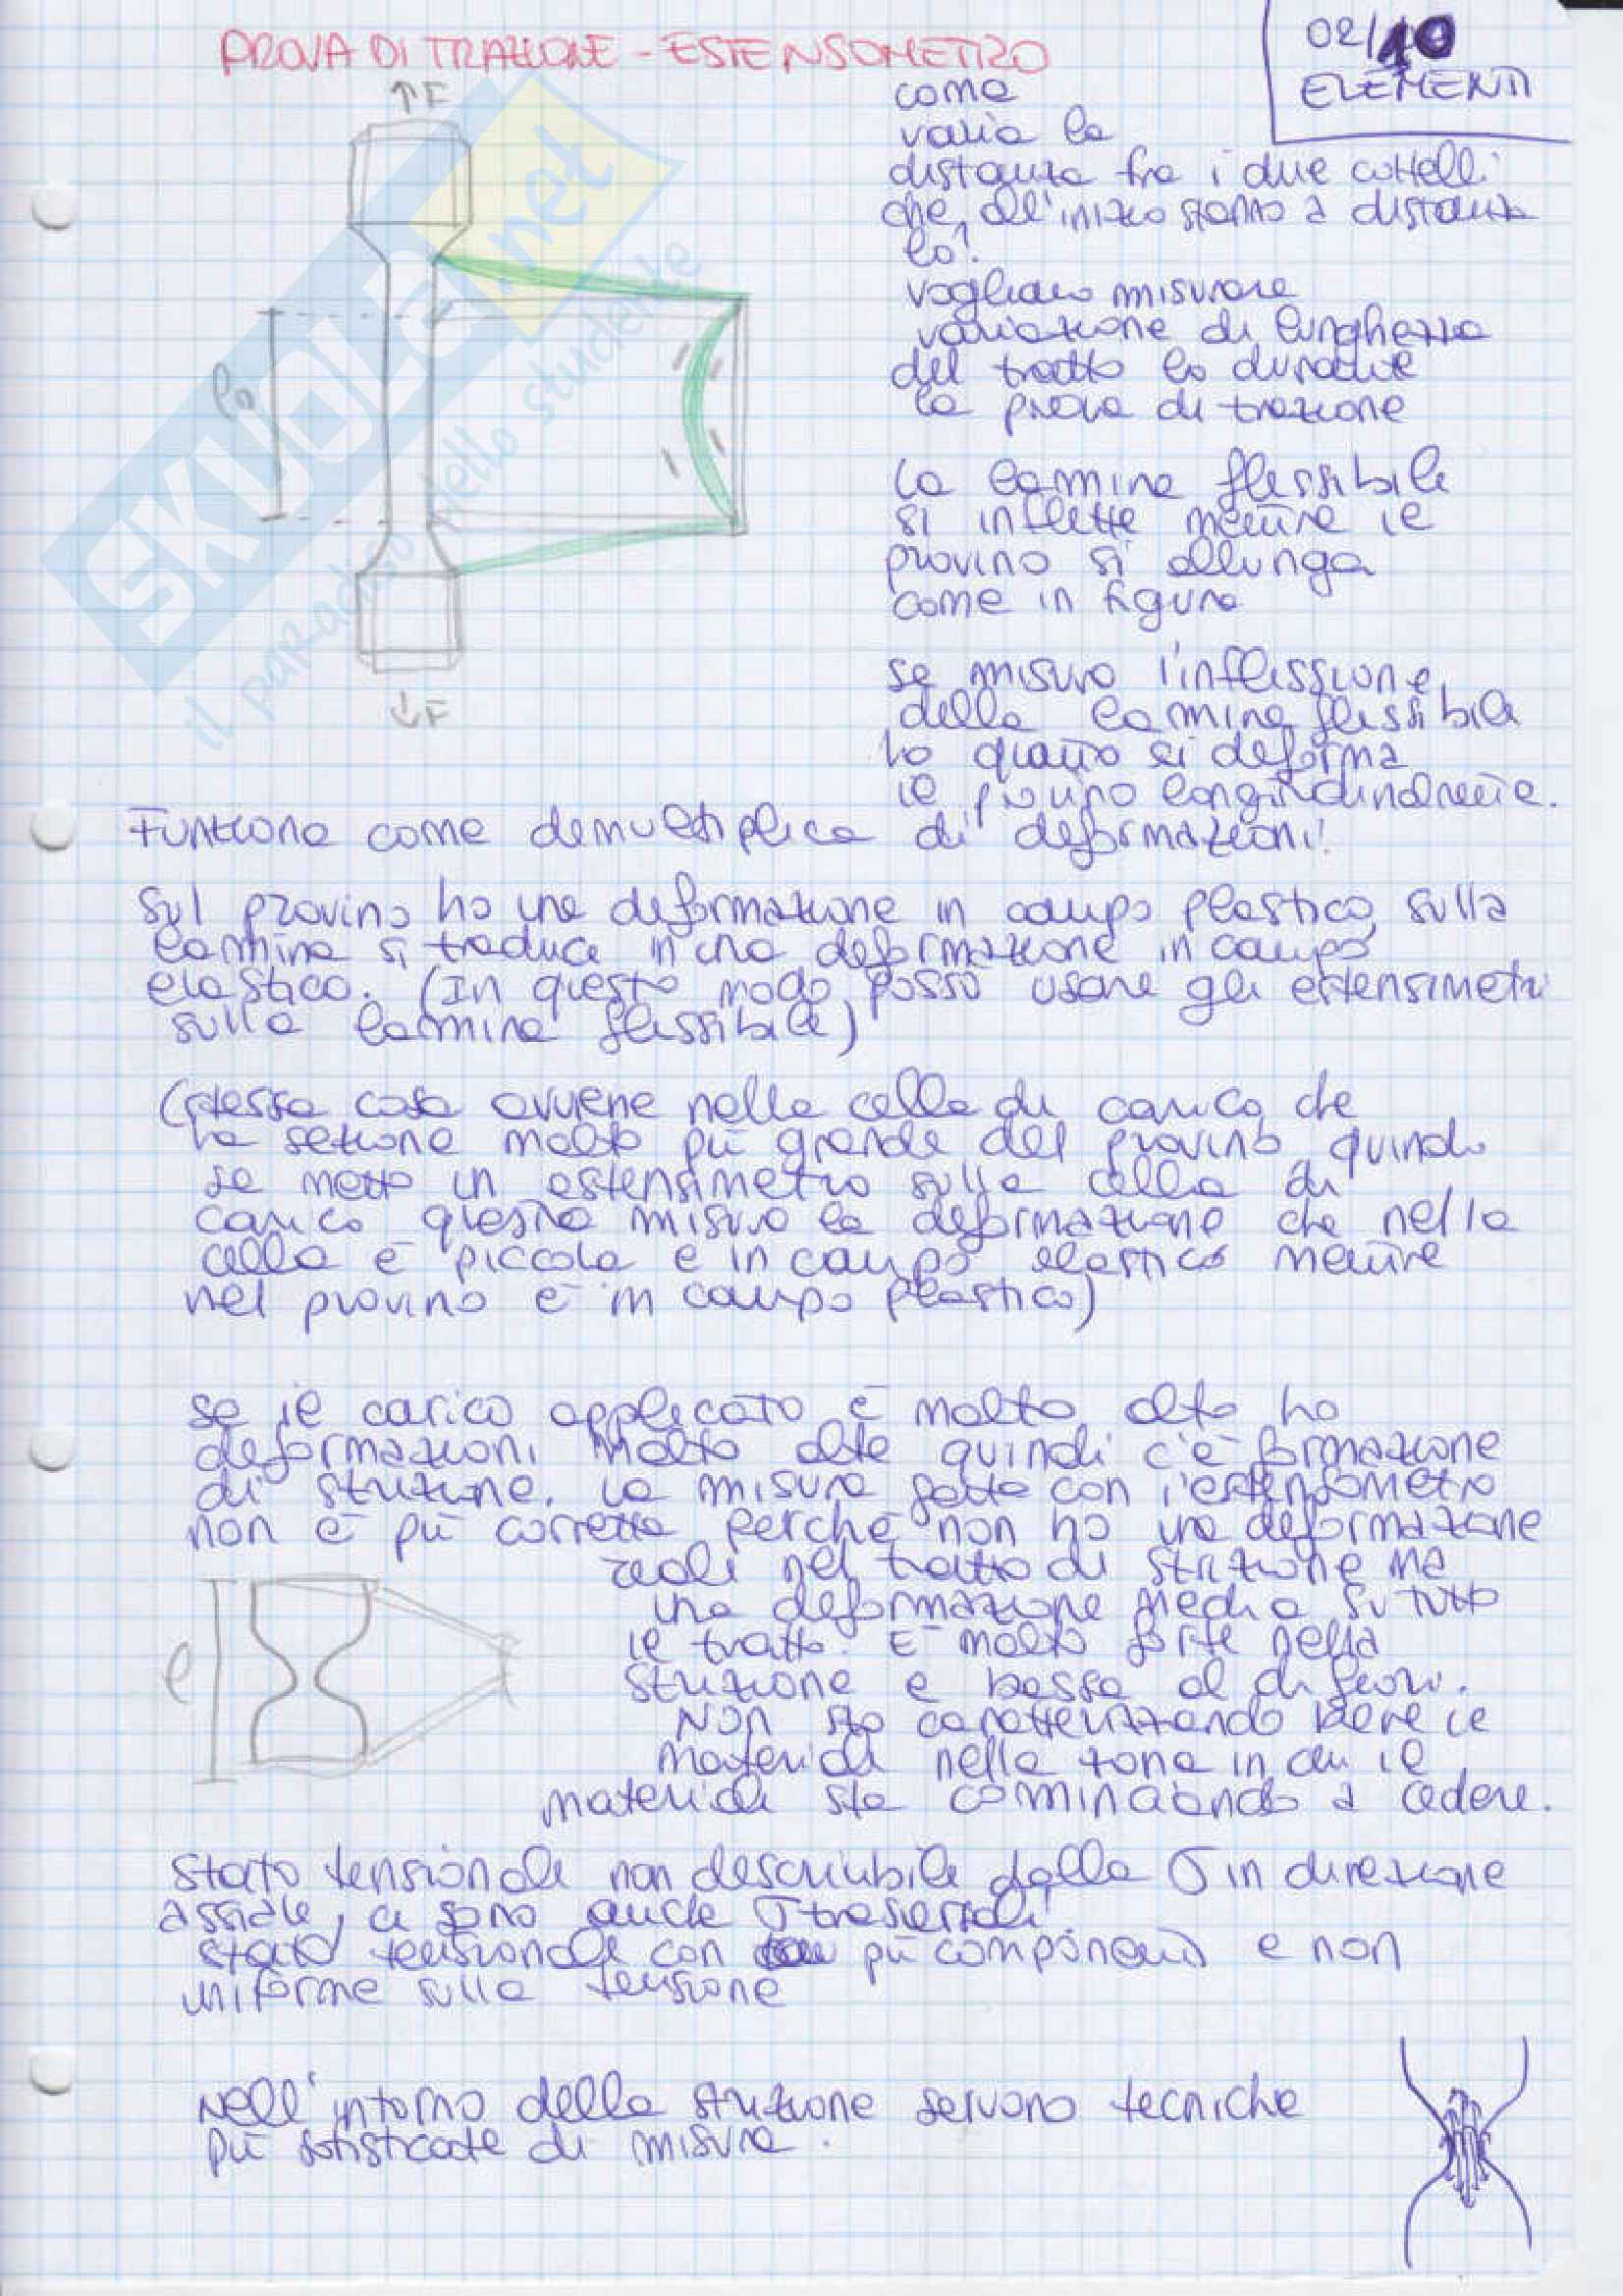 PROVA DI TRAZIONE - ESTENSOMETRO
02/10
ELEMENTI
↑F
come
varia la
distanza fra i due coltelli
che all'inizio stanno a distanza
l0?
vogliamo misurare
variazione di lunghezza
del tratto l0 durante
la prova di trazione
l0
La lamina flessibile
si inflette mentre il
provino si allunga
come in figura
se misuro l'inflessione
della lamina flessibile
ho quanto si deforma
il provino longitudinalmente.
↓F
Funziona come demultiplica di deformazioni!
Sul provino ho una deformazione in campo plastico, sulla
lamina si traduce in una deformazione in campo
elastico. (In questo modo posso usare gli estensimetri
sulla lamina flessibile)
(stessa cosa avviene nella cella di carico che
ha sezione molto più grande del provino quindi
se metto un estensimetro sulla cella di
carico questo misura la deformazione che nella
cella è piccola e in campo elastico mentre
nel provino è in campo plastico)
se il carico applicato è molto alto ho
deformazioni molto alte quindi c'è formazione
di strizione. La misura fatta con l'estensometro
non è più corretta perché non ho una deformazione
reale nel tratto di strizione ma
una deformazione media su tutto
il tratto. È molto forte nella
strizione e bassa al di fuori.
Non sto caratterizzando bene il
materiale nella zona in cui il
materiale sta cominciando a cedere.
l
Stato tensionale non descrivibile dalla σ in direzione
assiale, ci sono anche σ trasversali!
stato tensionale con più componenti e non
uniforme sulla tensione
Nell'intorno della strizione servono tecniche
più sofisticate di misura.
SKUOLA.net
il paradiso dello studente